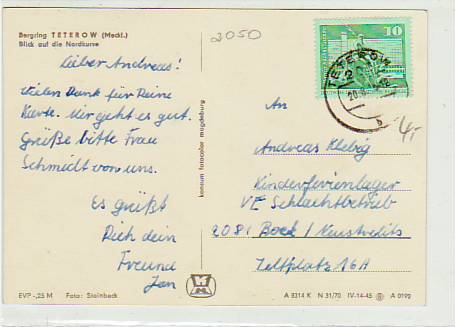 Bergring TETEROW (Meckl.)
Blick auf die Nordkurve
2050
Lieber Andreas!
vielen Dank für Deine
Karte. Mir geht es gut.
Grüße bitte Frau
Schmidt von uns.
Es grüßt
Dich dein
Freund
Jan
konsum fotocolor magdeburg
10
TETEROW
An
4,-
Andreas Klebig
Kinderferienlager
VE Schlachtbetrieb
2081 Boek / Neustrelitz
Zeltplatz 16A
EVP -,25 M Foto: Steinbeck
A 8314 K N 31/70 IV-14-45 A 0199